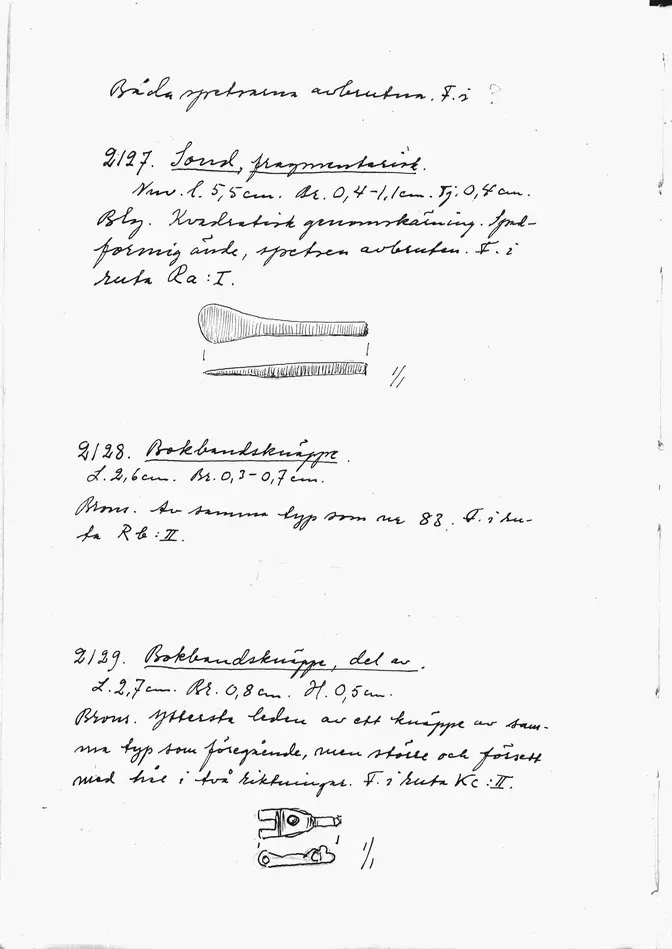 Båda spetsarna avbrutna. F. i ?
2127. Sond, fragmentarisk.
Nuv. l. 5,5 cm. Br. 0,4-1,1 cm. Tj. 0,4 cm.
Bly. Kvadratisk genomskärning. Spad-
formig ände, spetsen avbruten. F. i
ruta Ra: I.
1/1
2128. Bokbandsknäppe.
L. 2,6 cm. Br. 0,3-0,7 cm.
Brons. Av samma typ som nr 83. F. i ru-
ta Rb: II.
2129. Bokbandsknäppe, del av.
L. 2,7 cm. Br. 0,8 cm. H. 0,5 cm.
Brons. Yttersta leden av ett knäppe av sam-
ma typ som föregående, men större och försett
med hål i två riktningar. F. i ruta Kc: II.
1/1